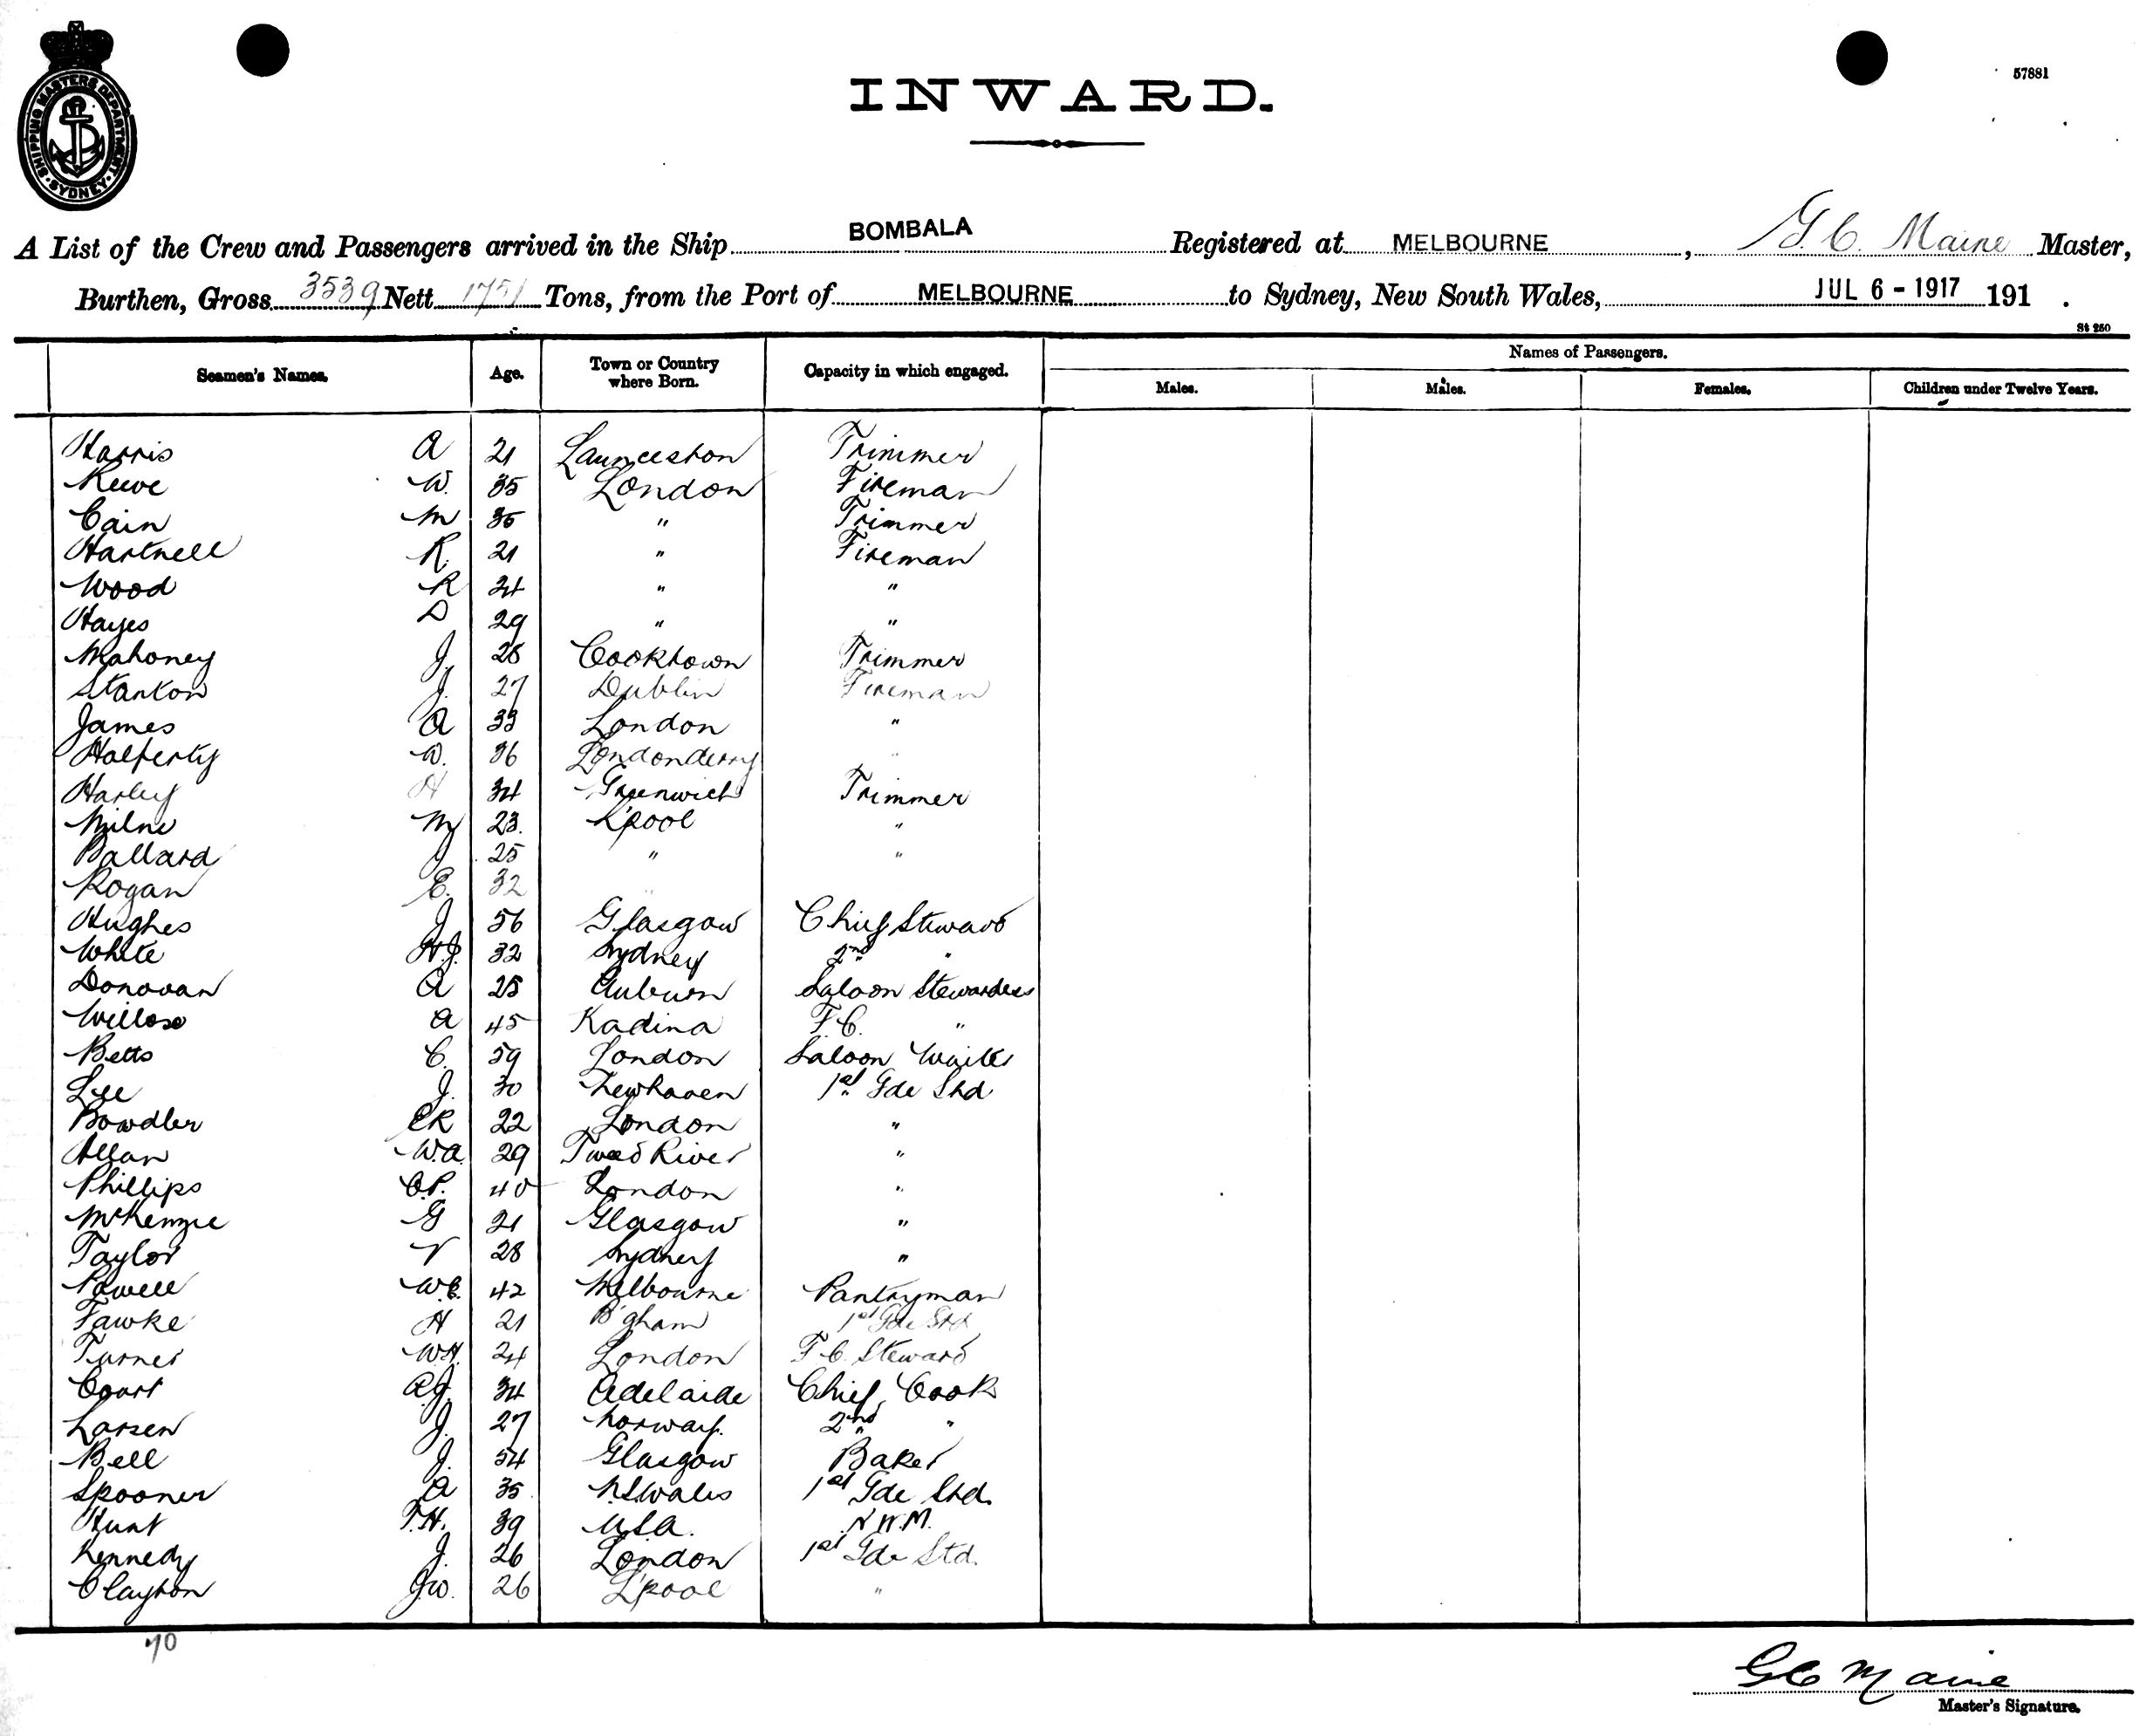 SHIPPING MASTERS DEPARTMENT · SYDNEY ·
57881
INWARD.
A List of the Crew and Passengers arrived in the Ship BOMBALA Registered at MELBOURNE, G. C. Maine Master,
Burthen, Gross 3539 Nett 1751 Tons, from the Port of MELBOURNE to Sydney, New South Wales, JUL 6 - 1917 191 .
St 250
Seamen's Names. Age. Town or Country where Born. Capacity in which engaged. Names of Passengers.
Males. Males. Females. Children under Twelve Years.
Harris A 21 Launceston Trimmer
Reeve W. 35 London Fireman
Cain M 35 " Trimmer
Hartnell R. 21 " Fireman
Wood R 24 " "
Hayes D 29 " "
Mahoney J. 28 Cooktown Trimmer
Stanton J. 27 Dublin Fireman
James A 33 London "
Halferty D. 36 Londonderry "
Harley H 34 Greenwich Trimmer
Milne M 23. L'pool "
Ballard J 25 " "
Rogan E. 32 "
Hughes J 56 Glasgow Chief Steward
White H.J. 32 Sydney 2nd "
Donovan A 25 Auburn Saloon Stewardess
Willose A 45 Kadina F.C. "
Betts C. 59 London Saloon Waiter
Lee J. 30 Newhaven 1st Gde Std
Bowdler CR 22 London "
Allan W.A. 29 Tweed River "
Phillips C.P. 40 London "
McKenzie G 21 Glasgow "
Taylor V 28 Sydney "
Powell W.C. 42 Melbourne Pantryman
Fawke H 21 B'gham 1st Gde Std
Turner W.H. 24 London F.C. Steward
Court A.J. 34 Adelaide Chief Cook
Larsen J. 27 Norway. 2nd "
Bell J. 54 Glasgow Baker
Spooner A 35 N.S.Wales 1st Gde Std.
Hunt F.H. 39 U.S.A. N.W.M.
Kennedy J. 26 London 1st Gde Std.
Clayton J.W. 26 L'pool "
70
G C Maine
Master's Signature.